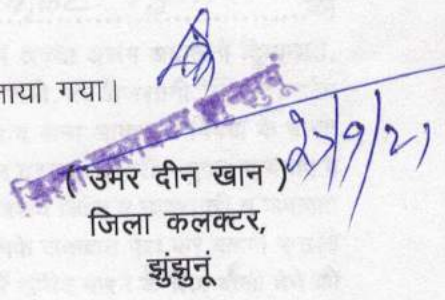 नाया गया।
जिला कलक्टर झुन्झुनूं
27/9/21
( उमर दीन खान )
जिला कलक्टर,
झुंझुनूं